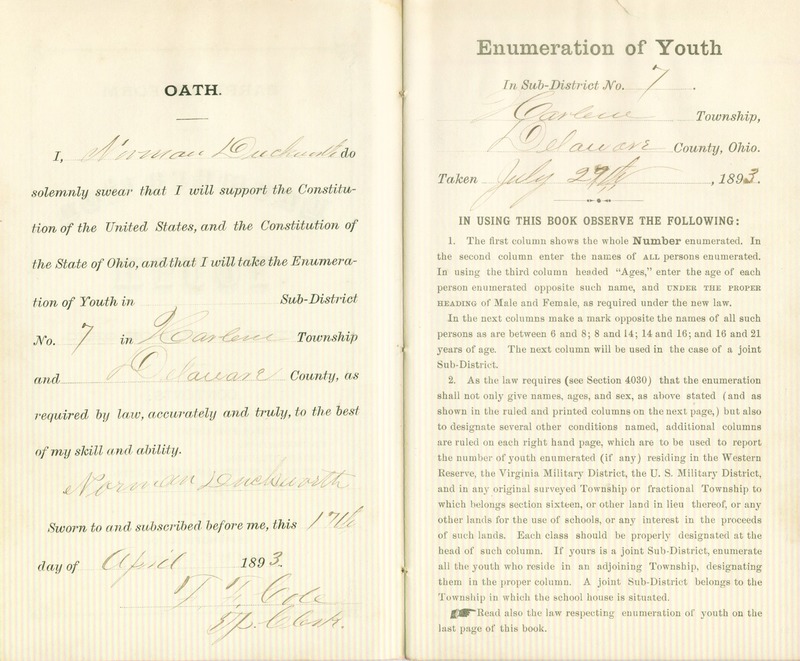 OATH.
I, Norman Duckworth do
solemnly swear that I will support the Constitu-
tion of the United States, and the Constitution of
the State of Ohio, and that I will take the Enumera-
tion of Youth in Sub-District
No. 7 in Harlem Township
and Delaware County, as
required by law, accurately and truly, to the best
of my skill and ability.
Norman Duckworth
Sworn to and subscribed before me, this 17th
day of April 1893.
T. F. Cole
Tp. Clerk.
Enumeration of Youth
In Sub-District No. 7.
Harlem Township,
Delaware County, Ohio.
Taken July 27th, 1893.
IN USING THIS BOOK OBSERVE THE FOLLOWING:
1. The first column shows the whole Number enumerated. In
the second column enter the names of ALL persons enumerated.
In using the third column headed "Ages," enter the age of each
person enumerated opposite such name, and UNDER THE PROPER
HEADING of Male and Female, as required under the new law.
In the next columns make a mark opposite the names of all such
persons as are between 6 and 8; 8 and 14; 14 and 16; and 16 and 21
years of age. The next column will be used in the case of a joint
Sub-District.
2. As the law requires (see Section 4030) that the enumeration
shall not only give names, ages, and sex, as above stated (and as
shown in the ruled and printed columns on the next page,) but also
to designate several other conditions named, additional columns
are ruled on each right hand page, which are to be used to report
the number of youth enumerated (if any) residing in the Western
Reserve, the Virginia Military District, the U. S. Military District,
and in any original surveyed Township or fractional Township to
which belongs section sixteen, or other land in lieu thereof, or any
other lands for the use of schools, or any interest in the proceeds
of such lands. Each class should be properly designated at the
head of such column. If yours is a joint Sub-District, enumerate
all the youth who reside in an adjoining Township, designating
them in the proper column. A joint Sub-District belongs to the
Township in which the school house is situated.
Read also the law respecting enumeration of youth on the
last page of this book.